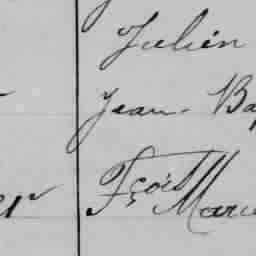 Julien
Jean Bap
Fçois Marie